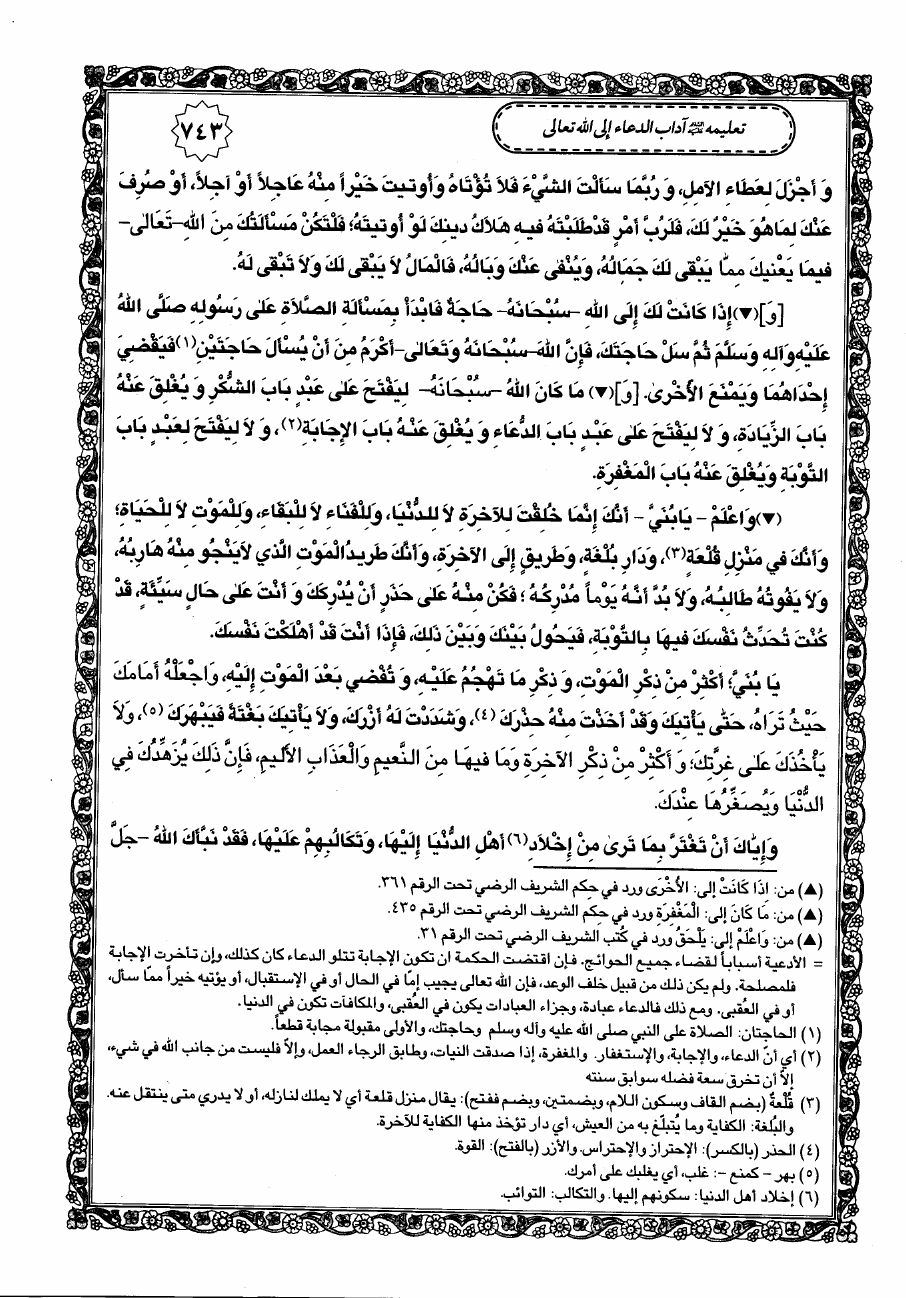 تعليمه عليه السلام آداب الدعاء إلى الله تعالى
٧٤٣
وَ أَجْزَلَ لِعَطَاءِ الآمِلِ، وَ رُبَّمَا سَأَلْتَ الشَّيْءَ فَلاَ تُؤْتَاهُ وَأُوتيتَ خَيْراً مِنْهُ عَاجِلاً أَوْ آجِلاً، أَوْ صُرِفَ
عَنْكَ لِمَاهُوَ خَيْرٌ لَكَ، فَلَرُبَّ أَمْرٍ قَدْطَلَبْتَهُ فيهِ هَلاَكُ دينِكَ لَوْ أُوتيتَهُ؛ فَلْتَكُنْ مَسْأَلَتُكَ مِنَ اللهِ-تَعَالىٰ-
فيمَا يَعْنيكَ مِمّا يَبْقى لَكَ جَمَالُهُ، وَيُنْفى عَنْكَ وَبَالُهُ، فَالْمَالُ لاَ يَبْقى لَكَ وَلاَ تَبْقى لَهُ.
[و](▼)إِذَا كَانَتْ لَكَ إِلَى اللهِ -سُبْحَانَهُ- حَاجَةٌ فَابْدَأْ بِمَسْأَلَةِ الصَّلاَةِ عَلىٰ رَسُولِهِ صَلَّى اللهُ
عَلَيْهِ وَآلِهِ وَسَلَّمَ ثُمَّ سَلْ حَاجَتَكَ، فَإِنَّ اللهَ-سُبْحَانَهُ وَتَعَالىٰ-أَكْرَمُ مِنْ أَنْ يُسْأَلَ حَاجَتَيْنِ(١)فَيَقْضِيَ
إِحْدَاهُمَا وَيَمْنَعَ الأُخْرىٰ. [و](▼) مَا كَانَ اللهُ -سُبْحَانَهُ- لِيَفْتَحَ عَلىٰ عَبْدٍ بَابَ الشُّكْرِ وَ يُغْلِقَ عَنْهُ
بَابَ الزِّيَادَةِ، وَ لاَ لِيَفْتَحَ عَلىٰ عَبْدٍ بَابَ الدُّعَاءِ وَ يُغْلِقَ عَنْهُ بَابَ الإِجَابَةِ(٢)، وَ لاَ لِيَفْتَحَ لِعَبْدٍ بَابَ
التَّوْبَةِ وَيُغْلِقَ عَنْهُ بَابَ الْمَغْفِرَةِ.
(▼)وَاعْلَمْ - يَابُنَيَّ - أَنَّكَ إِنَّمَا خُلِقْتَ لِلآخِرَةِ لاَ لِلدُّنْيَا، وَلِلْفَنَاءِ لاَ لِلْبَقَاءِ، وَلِلْمَوْتِ لاَ لِلْحَيَاةِ؛
وَأَنَّكَ في مَنْزِلِ قُلْعَةٍ(٣)، وَدَارِ بُلْغَةٍ، وَطَريقٍ إِلَى الآخِرَةِ، وَأَنَّكَ طَريدُالْمَوْتِ الَّذي لاَيَنْجُو مِنْهُ هَارِبُهُ،
وَلاَ يَفُوتُهُ طَالِبُهُ، وَلاَ بُدَّ أَنَّهُ يَوْماً مُدْرِكُهُ؛ فَكُنْ مِنْهُ عَلىٰ حَذَرِ أَنْ يُدْرِكَكَ وَ أَنْتَ عَلىٰ حَالٍ سَيِّئَةٍ، قَدْ
كُنْتَ تُحَدِّثُ نَفْسَكَ فيهَا بِالتَّوْبَةِ، فَيَحُولُ بَيْنَكَ وَبَيْنَ ذَلِكَ، فَإِذَا أَنْتَ قَدْ أَهْلَكْتَ نَفْسَكَ.
يَا بُنَيَّ؛ أَكْثِرْ مِنْ ذِكْرِ الْمَوْتِ، وَ ذِكْرِ مَا تَهْجُمُ عَلَيْهِ، وَ تُفْضي بَعْدَ الْمَوْتِ إِلَيْهِ، وَاجْعَلْهُ أَمَامَكَ
حَيْثُ تَرَاهُ، حَتّىٰ يَأْتِيَكَ وَقَدْ أَخَذْتَ مِنْهُ حِذْرَكَ(٤)، وَشَدَدْتَ لَهُ أَزْرَكَ، وَلاَ يَأْتِيَكَ بَغْتَةً فَيَبْهَرَكَ(٥)، وَلاَ
يَأْخُذَكَ عَلىٰ غِرَّتِكَ؛ وَ أَكْثِرْ مِنْ ذِكْرِ الآخِرَةِ وَمَا فيهَا مِنَ النَّعيمِ وَالْعَذَابِ الأَليمِ، فَإِنَّ ذَلِكَ يُزَهِّدُكَ فِي
الدُّنْيَا وَيُصَغِّرُهَا عِنْدَكَ.
وَإِيّاكَ أَنْ تَغْتَرَّ بِمَا تَرىٰ مِنْ إِخْلاَدِ(٦) أَهْلِ الدُّنْيَا إِلَيْهَا، وَتَكَالُبِهِمْ عَلَيْهَا، فَقَدْ نَبَّأَكَ اللهُ -جَلَّ
(▲) من: اذَا كَانَتْ إلى: الأُخْرىٰ ورد في حِكم الشريف الرضي تحت الرقم ٣٦١.
(▲) من: مَا كَانَ إلى: الْمَغْفِرَةِ ورد في حِكم الشريف الرضي تحت الرقم ٤٣٥.
(▲) من: وَاعْلَمْ إلى: يَلْحَقُ ورد في كُتب الشريف الرضي تحت الرقم ٣١.
= الأدعية أسباباً لقضاء جميع الحوائج. فإن اقتضت الحكمة ان تكون الإجابة تتلو الدعاء كان كذلك، وإن تأخرت الإجابة
فلمصلحة. ولم يكن ذلك من قبيل خلف الوعد، فإن الله تعالى يجيب إمّا في الحال أو في الإستقبال، أو يؤتيه خيراً ممّا سأل،
أو في العُقبى. ومع ذلك فالدعاء عبادة، وجزاء العبادات يكون في العُقبى، والمكافآت تكون في الدنيا.
(١) الحاجتان: الصلاة على النبي صلى الله عليه وآله وسلم وحاجتك، والأولى مقبولة مجابة قطعاً.
(٢) أي أنّ الدعاء، والإجابة، والإستغفار. والمغفرة، إذا صدقت النيات، وطابق الرجاء العمل، وإلاّ فليست من جانب الله في شيء،
إلاّ أن تخرق سعة فضله سوابق سنته
(٣) قُلْعةٌ (بضم القاف وسكون اللام، وبضمتين، وبضم ففتح): يقال منزل قلعة أي لا يملك لنازله، أو لا يدري متى ينتقل عنه.
والبُلغة: الكفاية وما يُتبلّغ به من العيش، أي دار تؤخذ منها الكفاية للآخرة.
(٤) الحذر (بالكسر): الإحتراز والإحتراس. والأزر (بالفتح): القوة.
(٥) بهر - كمنع -: غلب، أي يغلبك على أمرك.
(٦) إخلاد أهل الدنيا: سكونهم إليها. والتكالب: التواثب.